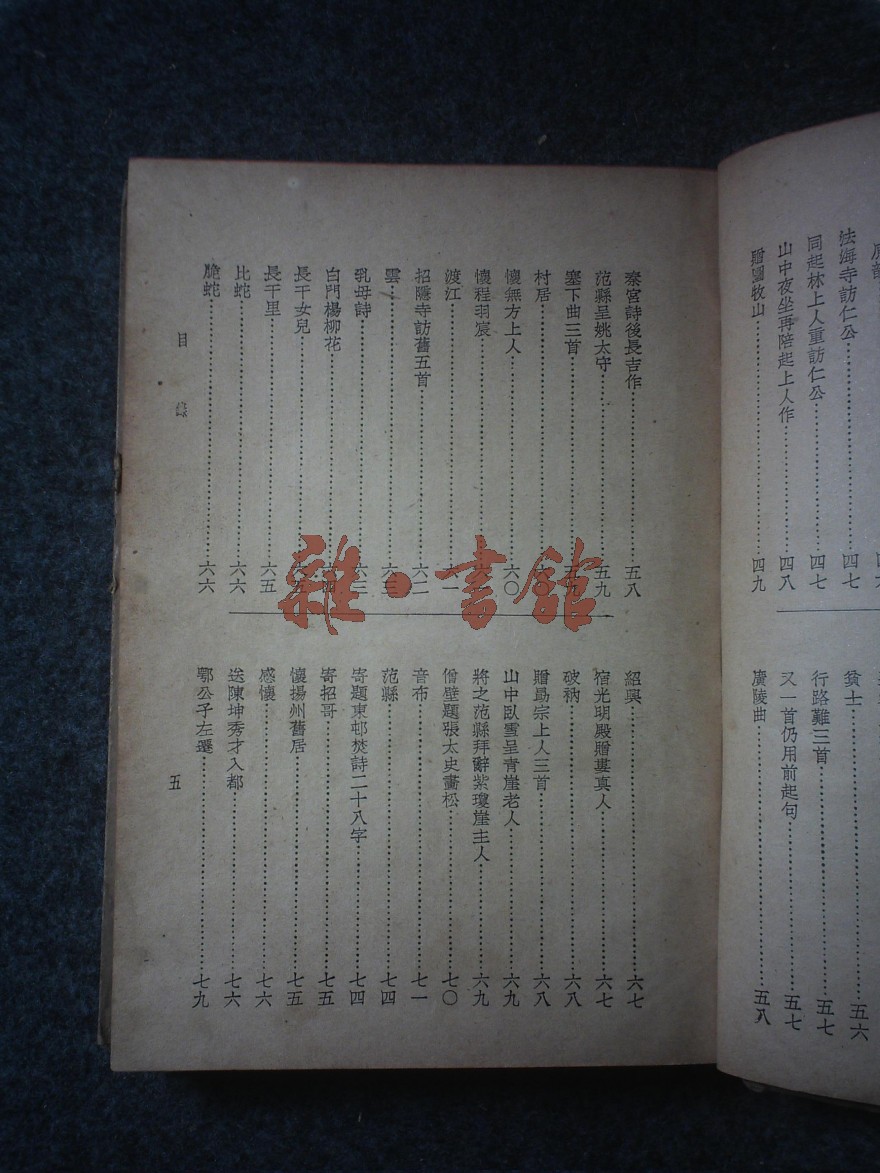 法海寺訪仁公……四七
同起林上人重訪仁公……四七
山中夜坐再陪起上人作……四八
贈圖牧山……四九
貧士……五六
行路難三首……五七
又一首仍用前起句……五七
廣陵曲……五八
秦宮詩後長吉作……五八
范縣呈姚太守……五九
塞下曲三首……五九
村居……
懷無方上人……六〇
懷程羽宸……
渡江……
招隱寺訪舊五首……六二
雲……
乳母詩……六三
白門楊柳花……六四
長干女兒……
長干里……六五
比蛇……六六
脆蛇……六六
紹興……六七
宿光明殿贈婁真人……六七
破衲……六八
贈勗宗上人三首……六八
山中臥雪呈青崖老人……六九
將之范縣拜辭紫瓊崖主人……六九
僧壁題張太史畫松……七〇
音布……七一
范縣……七四
寄題東邨焚詩二十八字……七四
寄招哥……七五
懷揚州舊居……七五
感懷……七六
送陳坤秀才入都……七六
鄂公子左遷……七九
目錄
五
雜·書館